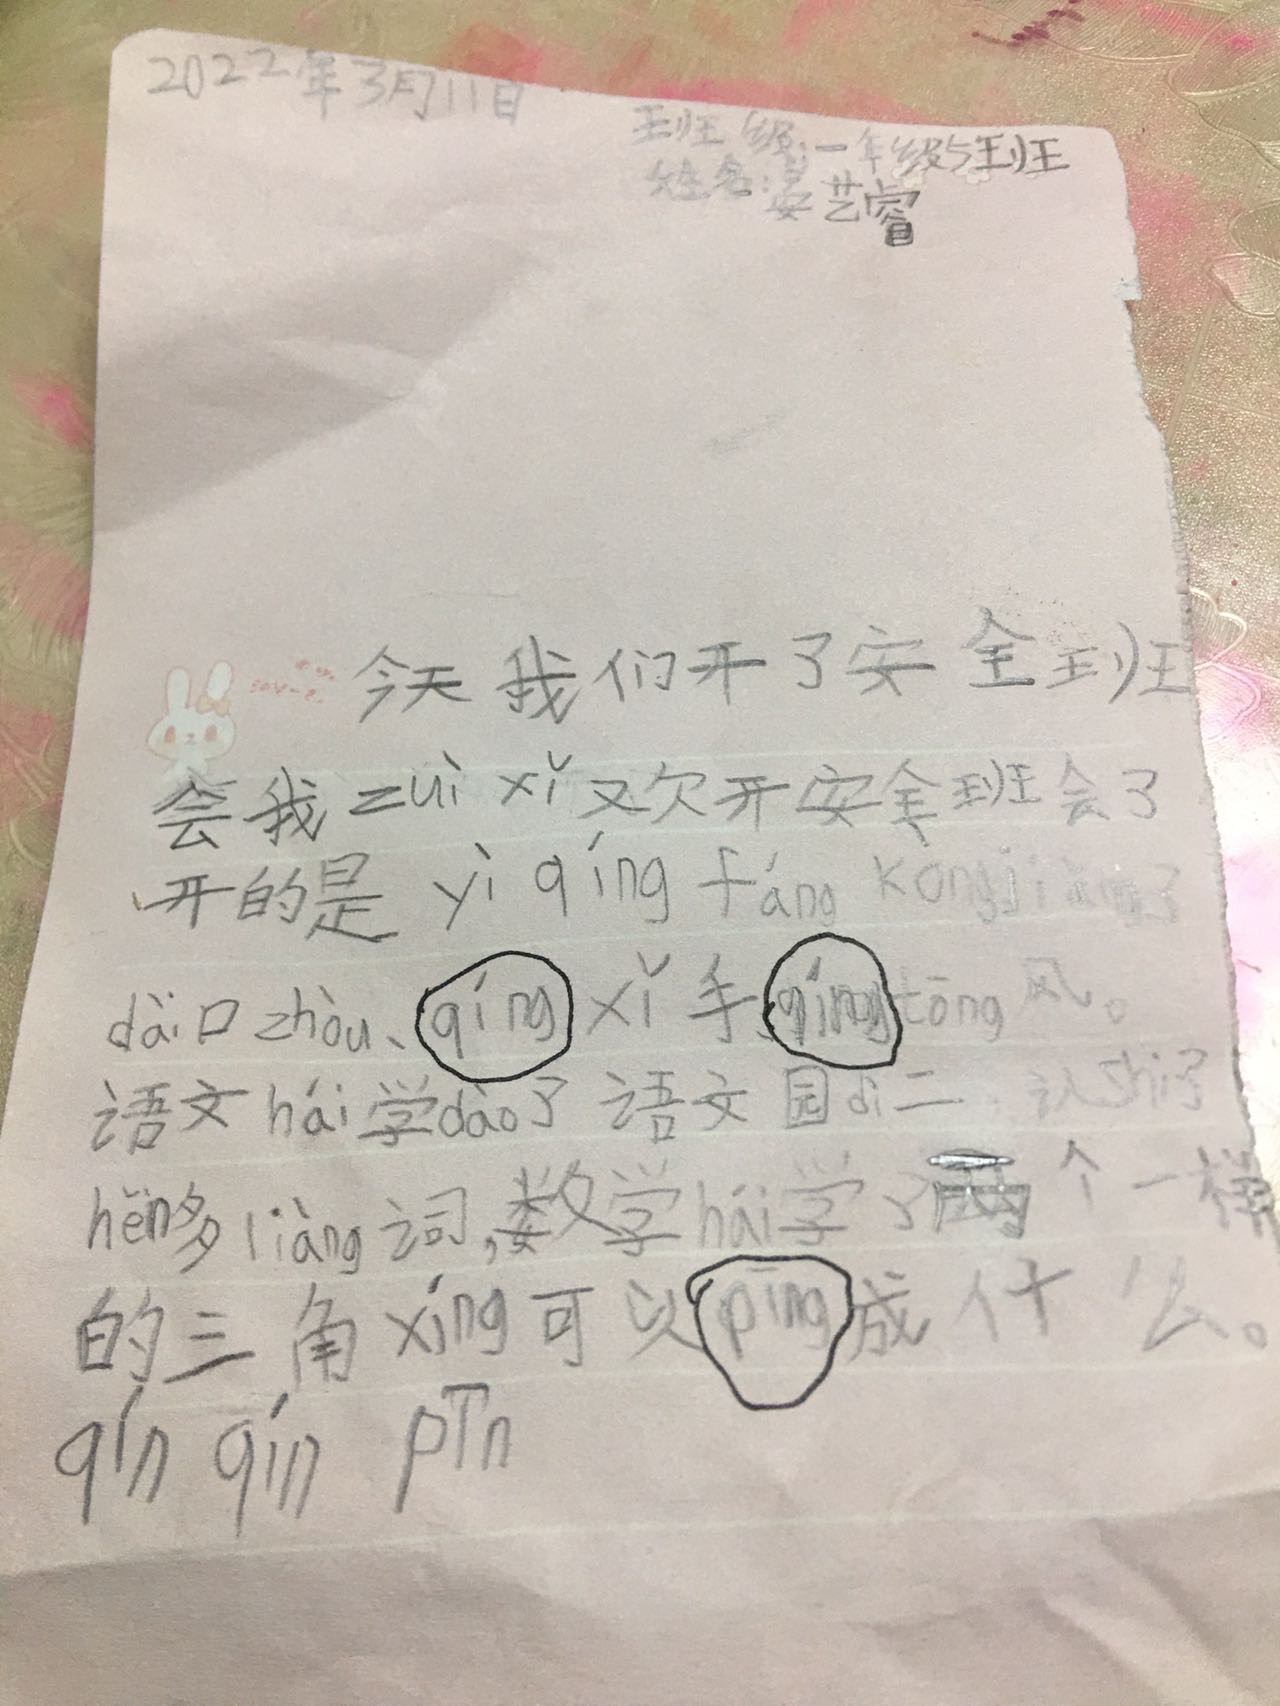 2022年3月11日
班级:一年级5班
姓名:晏艺睿
今天我们开了安全班
会我zuì xǐ欢开安全班会了
开的是 yì qíng fáng kòng jiǎng了
dài口zhòu、qíng xǐ手、qíng tōng风。
语文hái学dào了语文园dì二.认shi了
hěn多liàng词,数学hái学了两个一样
的三角xíng可以pīng成什么。
qín qín pīn